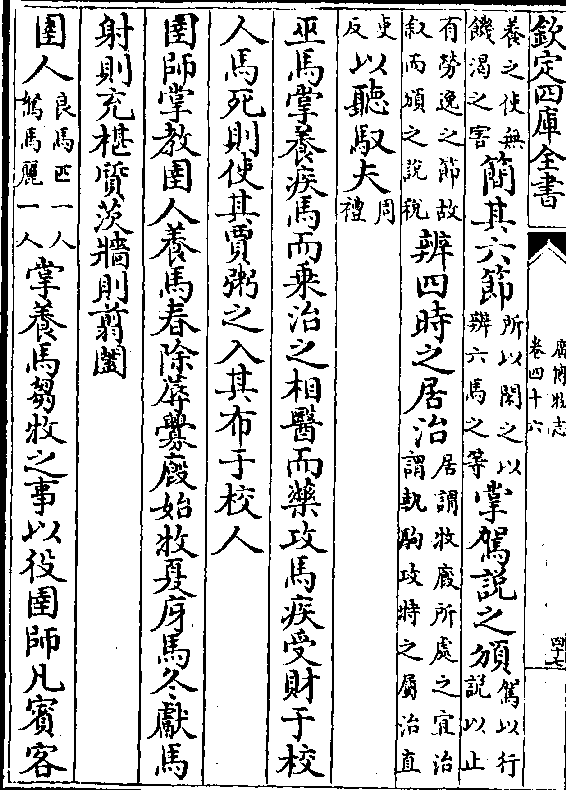 欽定四庫全書
廣博物志
卷四十六
四十七
養之使無饑渴之害簡其六節所以閑之以辨六馬之等掌駕説之頒駕以行説以止
有勞逸之節故叙而頒之説税辨四時之居治居謂牧廄所處之宜治謂執駒攻特之屬治直
吏反以聽馭夫周禮
巫馬掌養疾馬而乗治之相醫而藥攻馬疾受財于校
人馬死則使其賈粥之入其布于校人
圉師掌教圉人養馬春除蓐釁廄始牧夏庌馬冬獻馬
射則充椹質茨牆則翦闔
圉人良馬匹一人駑馬麗一人掌養馬芻牧之事以役圉師凡賓客